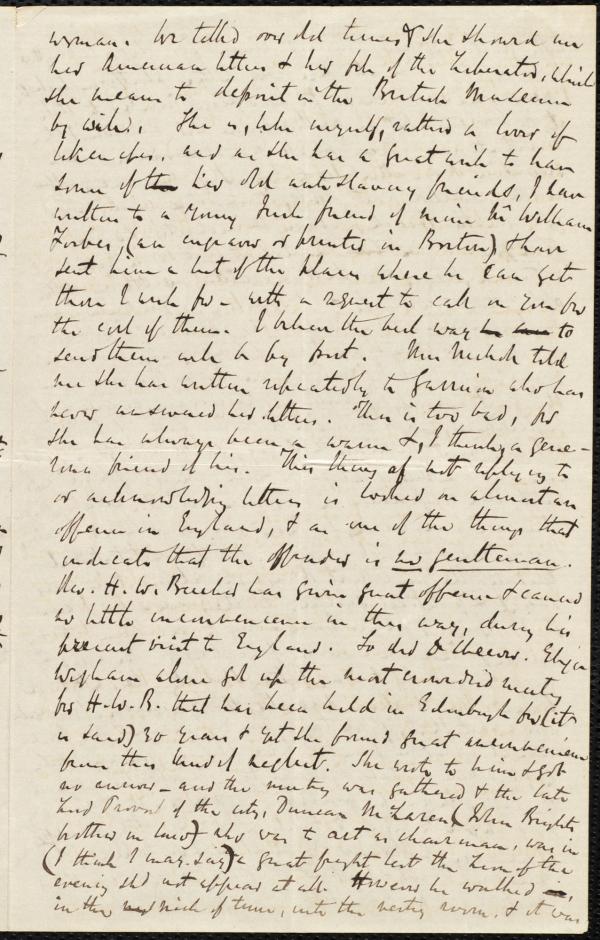 woman. We talked over old times & she showed me
her American letters & her file of the Liberator, which
she means to deposit in the British Museum
by will. She is, like myself, rather a lover of
likenesses. and as she has a great wish to have
some of the her old antislavery friends, I have
written to a young Irish friend of mine Mr William
Forbes, (an engraver or printer in Boston) & have
sent him a list of the places where he can get
those I wish for - with a request to call on you for
the cost of them. I believe the best way to
send them will be by post. Mrs Nichols told
me she has written repeatedly to Garrison who has
never answered her letters. This is too bad, for
she has always been a warm &, I think, a gene-
rous friend of his. This thing of not replying to
or acknowledging letters is looked on almost an
offence in England, & as one of the things that
indicate that the offender is no gentleman.
Rev. H. W. Beecher has given great offence & caused
no little inconvenience in this way, during his
present visit to England. So did Dr Cheever. Eliza
Wigham alone got up the most crowded meeting
for H. W. B. that has been held in Edinburgh for (it
is said) 30 years & yet she found great inconvenience
from this kind of neglect. She wrote to him & got
no answer - and the meeting was gathered & the late
Lord Provost of the city, Duncan McLaren (John Bright's
brother in law) who was to act as chairman, was in
(I think I may say) a great fright lest the hero of the
evening shd not appear at all. However he walked
in the nick of time, into the vestry room, & it was